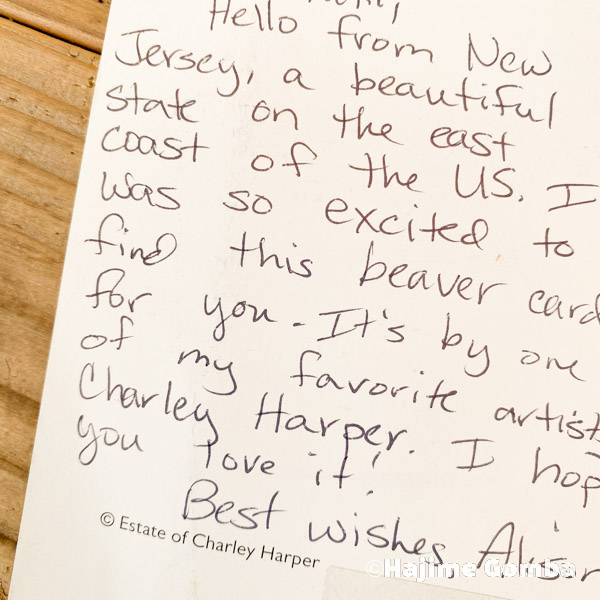 Hello from New
Jersey, a beautiful
state on the east
coast of the US. I
was so excited to
find this beaver card
for you. It's by one
of my favorite artists
Charley Harper. I hop
you love it!
Best wishes
© Estate of Charley Harper
©Hajime Gomba